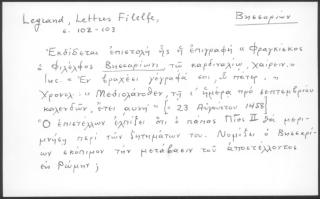 Legrand, Lettres Filelfe,
σ. 102-103
Βησσαρίων
Ἐκδίδεται ἐπιστολὴ ἧς ἡ ἐπιγραφὴ « Φραγκίσκος
ὁ Φιλέλφος Βησσαρίωνι τῷ καρδιναλίῳ, χαίρειν.»
Inc. « Ἐν βραχέσι γέγραφά σοι, ὦ πάτερ. »
Χρονολ. « Μεδιολάνοθεν, τῇ ι´ ἡμέρᾳ πρὸ σεπτεμβρίου
καλενδῶν, ἔτει αυνη´» [= 23 Αὐγούστου 1458]
Ὁ ἐπιστέλλων ἐλπίζει ὅτι ὁ πάπας Πῖος II θὰ μερι-
μνήσῃ περὶ τῶν ζητημάτων του. Νομίζει ὁ Βησσαρί-
ων σκόπιμον τὴν μετάβασιν τοῦ ἀποστέλλοντος
ἐν Ρώμῃ;